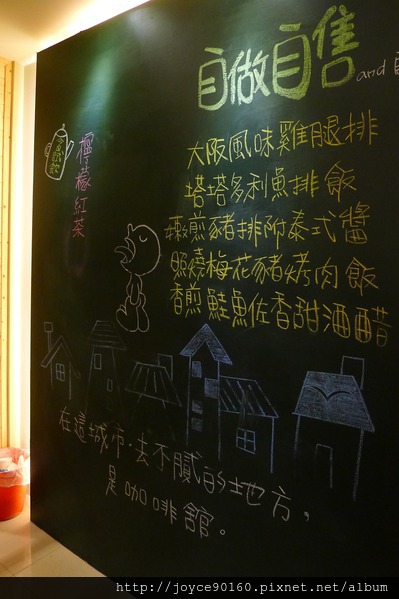 自做自售
and
大阪風味雞腿排
塔塔多利魚排飯
煎豬排附泰式醬
照燒梅花豬烤肉飯
香煎鮭魚佐香甜酒醋
檸檬紅茶
在這城市,去不膩的地方,
是咖啡館。
http://joyce90160.pixnet.net/album